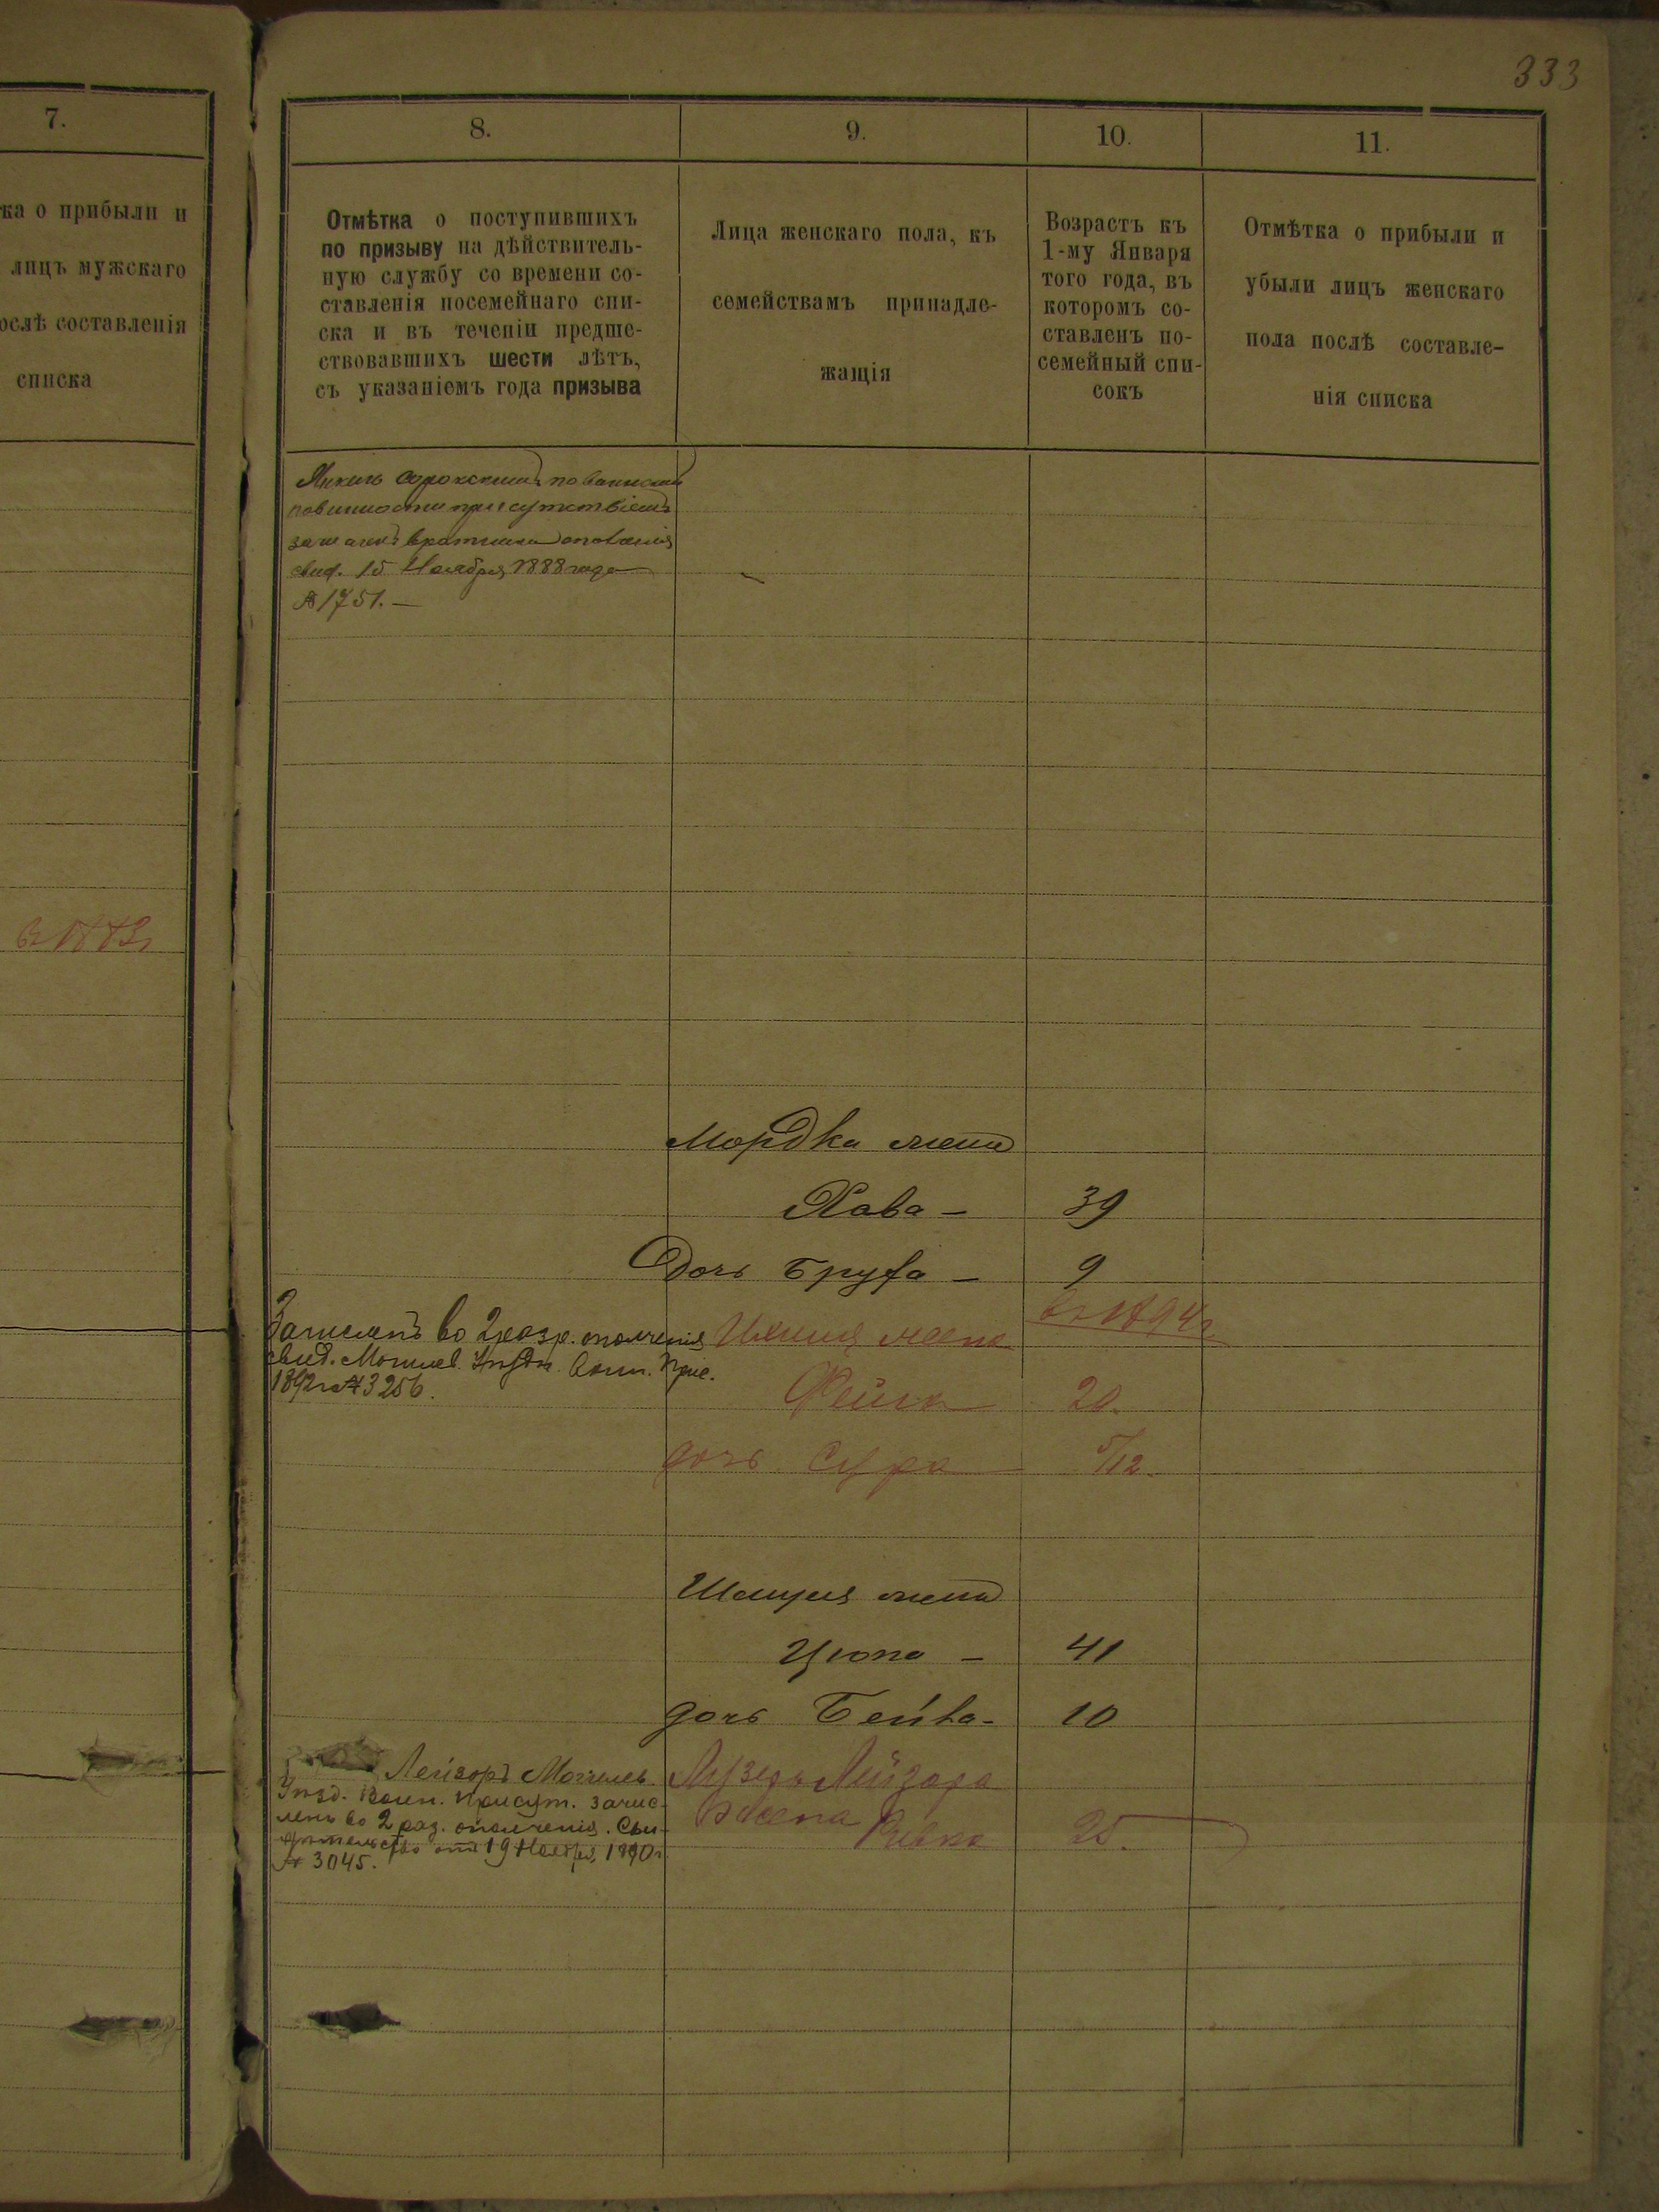 333
7.
ка о прибыли и
лицъ мужскаго
ослѣ составленія
списка
8.
9.
10.
11.
Отмѣтка о поступившихъ
по призыву на дѣйствитель-
ную службу со времени со-
ставленія посемейнаго спи-
ска и въ теченіи предше-
ствовавшихъ шести лѣтъ,
съ указаніемъ года призыва
Лица женскаго пола, къ
семействамъ принадле-
жащія
Возрастъ къ
1-му Января
того года, въ
которомъ со-
ставленъ по-
семейный спи-
сокъ
Отмѣтка о прибыли и
убыли лицъ женскаго
пола послѣ составле-
нія списка
Сорокскимъ по воинской
повинности присутствіемъ
свид. 15 Ноября 1888 года
№ 1751. —
Мордка жена
Хава — 39
Дочь Бруха — 9
въ 1894 г
Зачисленъ во 2 разр. ополченія
свид. Могилев. Уѣздн. Воин. Прис.
1892 г № 3256.
жена
Фейга 20.
дочь Сура 5/12.
Шмуля жена
Ципа — 41
дочь Бейла - 10
Лейзоръ Могилев.
Уѣзд. Воин. Присут. зачис-
ленъ во 2 раз. ополченія. Сви-
дѣтельство отъ 19 Ноября 1890 г
№ 3045.
Лейзора
жена Ривка 25.